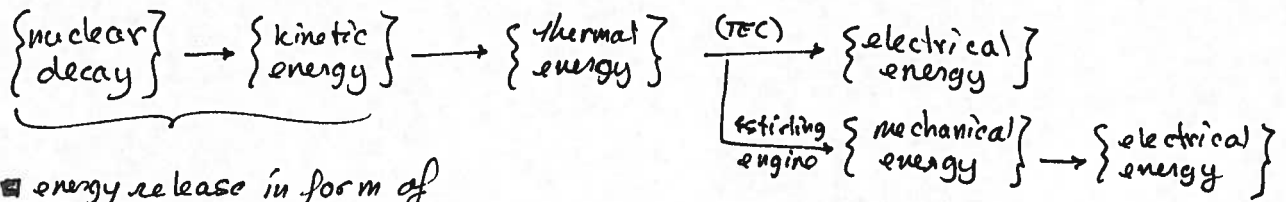 {nuclear decay} → {kinetic energy} → {thermal energy} (TEC) → {electrical energy}
stirling engine → {mechanical energy} → {electrical energy}
energy release in form of